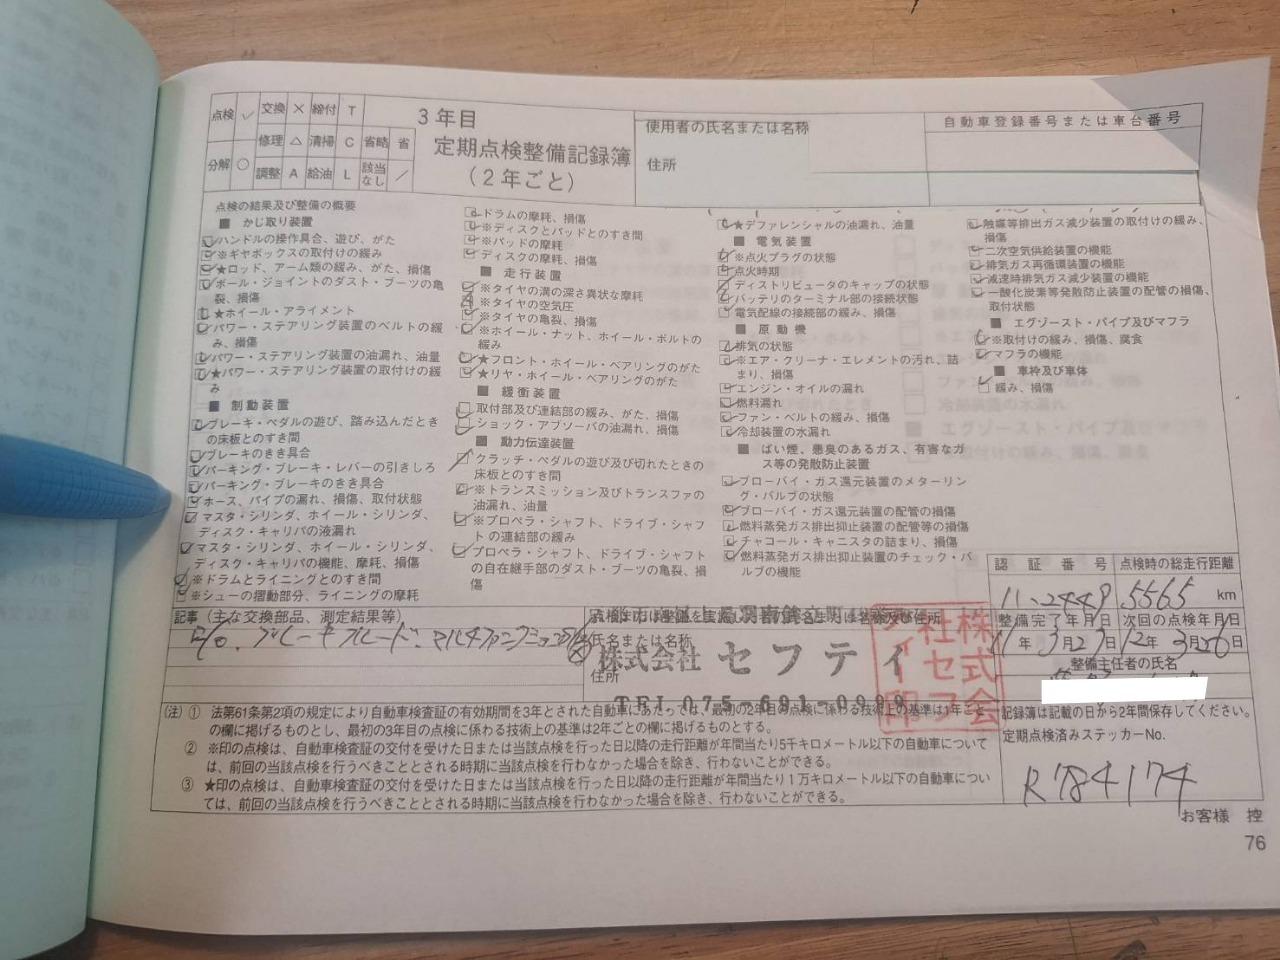 点検 ✓ 交換 × 締付 T
修理 △ 清掃 C 省略 省
分解 ○ 調整 A 給油 L 該当なし ／
3年目
定期点検整備記録簿
(2年ごと)
使用者の氏名または名称
住所
自動車登録番号または車台番号
点検の結果及び整備の概要
■ かじ取り装置
ハンドルの操作具合、遊び、がた
※ギヤボックスの取付けの緩み
★ロッド、アーム類の緩み、がた、損傷
ボール・ジョイントのダスト・ブーツの亀
裂、損傷
★ホイール・アライメント
パワー・ステアリング装置のベルトの緩
み、損傷
パワー・ステアリング装置の油漏れ、油量
★パワー・ステアリング装置の取付けの緩
み
■ 制動装置
ブレーキ・ペダルの遊び、踏み込んだとき
の床板とのすき間
ブレーキのきき具合
パーキング・ブレーキ・レバーの引きしろ
パーキング・ブレーキのきき具合
ホース、パイプの漏れ、損傷、取付状態
マスタ・シリンダ、ホイール・シリンダ、
ディスク・キャリパの液漏れ
マスタ・シリンダ、ホイール・シリンダ、
ディスク・キャリパの機能、摩耗、損傷
※ドラムとライニングとのすき間
※シューの摺動部分、ライニングの摩耗
ドラムの摩耗、損傷
※ディスクとパッドとのすき間
※パッドの摩耗
ディスクの摩耗、損傷
■ 走行装置
※タイヤの溝の深さ異状な摩耗
※タイヤの空気圧
※タイヤの亀裂、損傷
※ホイール・ナット、ホイール・ボルトの
緩み
★フロント・ホイール・ベアリングのがた
★リヤ・ホイール・ベアリングのがた
■ 緩衝装置
取付部及び連結部の緩み、がた、損傷
ショック・アブソーバの油漏れ、損傷
■ 動力伝達装置
クラッチ・ペダルの遊び及び切れたときの
床板とのすき間
※トランスミッション及びトランスファの
油漏れ、油量
※プロペラ・シャフト、ドライブ・シャフ
トの連結部の緩み
プロペラ・シャフト、ドライブ・シャフト
の自在継手部のダスト・ブーツの亀裂、損
傷
★デファレンシャルの油漏れ、油量
■ 電気装置
※点火プラグの状態
点火時期
ディストリビュータのキャップの状態
バッテリのターミナル部の接続状態
電気配線の接続部の緩み、損傷
■ 原動機
排気の状態
※エア・クリーナ・エレメントの汚れ、詰
まり、損傷
エンジン・オイルの漏れ
燃料漏れ
ファン・ベルトの緩み、損傷
冷却装置の水漏れ
■ ばい煙、悪臭のあるガス、有害なガ
ス等の発散防止装置
ブローバイ・ガス還元装置のメターリン
グ・バルブの状態
ブローバイ・ガス還元装置の配管の損傷
燃料蒸発ガス排出抑止装置の配管等の損傷
チャコール・キャニスタの詰まり、損傷
燃料蒸発ガス排出抑止装置のチェック・バ
ルブの機能
触媒等排出ガス減少装置の取付けの緩み、
損傷
二次空気供給装置の機能
排気ガス再循環装置の機能
減速時排気ガス減少装置の機能
一酸化炭素等発散防止装置の配管の損傷、
取付状態
■ エグゾースト・パイプ及びマフラ
※取付けの緩み、損傷、腐食
マフラの機能
■ 車枠及び車体
緩み、損傷
認証番号 点検時の総走行距離
11-2449 5565 km
整備完了年月日 次回の点検年月日
11年3月27日 12年3月26日
整備主任者の氏名
記事（主な交換部品、測定結果等）
ブレーキフルード
氏名または名称
株式会社 セフティ
住所
TEL 075-691-0909
株式会社セフティ印
(注) ① 法第61条第2項の規定により自動車検査証の有効期間を3年とされた自動車にあたっては、最初の2年目の点検に係わる技術上の基準は1年ごと
の欄に掲げるものとし、最初の3年目の点検に係わる技術上の基準は2年ごとの欄に掲げるものとする。
② ※印の点検は、自動車検査証の交付を受けた日または当該点検を行った日以降の走行距離が年間当たり5千キロメートル以下の自動車について
は、前回の当該点検を行うべきこととされる時期に当該点検を行わなかった場合を除き、行わないことができる。
③ ★印の点検は、自動車検査証の交付を受けた日または当該点検を行った日以降の走行距離が年間当たり1万キロメートル以下の自動車につい
ては、前回の当該点検を行うべきこととされる時期に当該点検を行わなかった場合を除き、行わないことができる。
記録簿は記載の日から2年間保存してください。
定期点検済みステッカーNo.
R784174
お客様 控
76